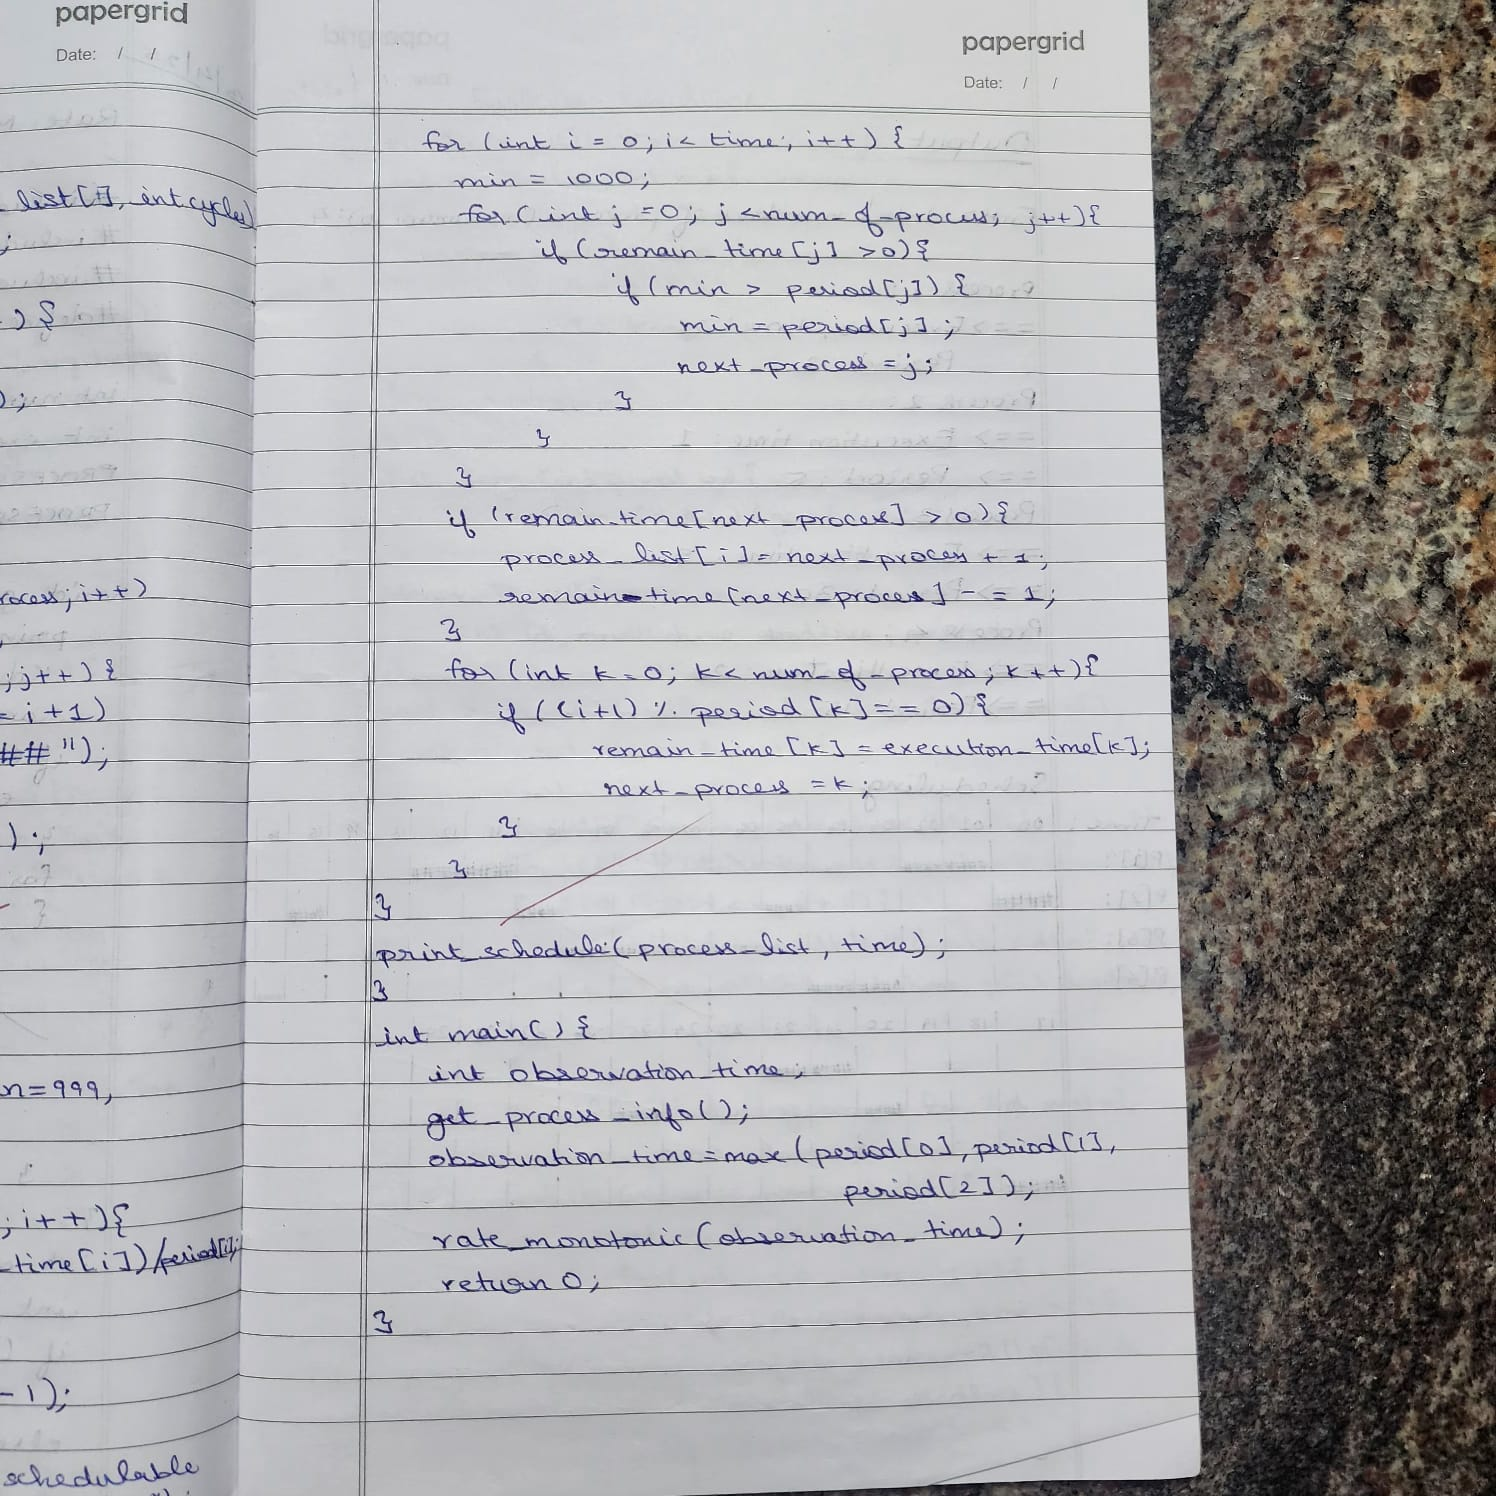 papergrid
Date: / /
list[], int cycles)
;
) {
);
rocess; i++)
; j++) {
= i+1)
## ");
);
n=999,
; i++){
_time[i])/period[i];
-1);
schedulable
papergrid
Date: / /
for (int i = 0; i< time; i++) {
min = 1000;
for (int j =0; j <num_of_process; j++){
if (remain_time [j] >0){
if (min > period[j]) {
min = period[j];
next_process =j;
}
}
}
if (remain_time[next_process] > 0){
process_list[i]= next_process + 1;
remain_time[next_process] -= 1;
}
for (int k=0; k< num_of_process; k++){
if ((i+1) % period[k]==0){
remain_time [k] = execution_time[k];
next_process =k;
}
}
}
print_schedule(process_list, time);
}
int main() {
int observation_time;
get_process_info();
observation_time=max(period[0], period[1],
period[2]);
rate_monotonic(observation_time);
return 0;
}